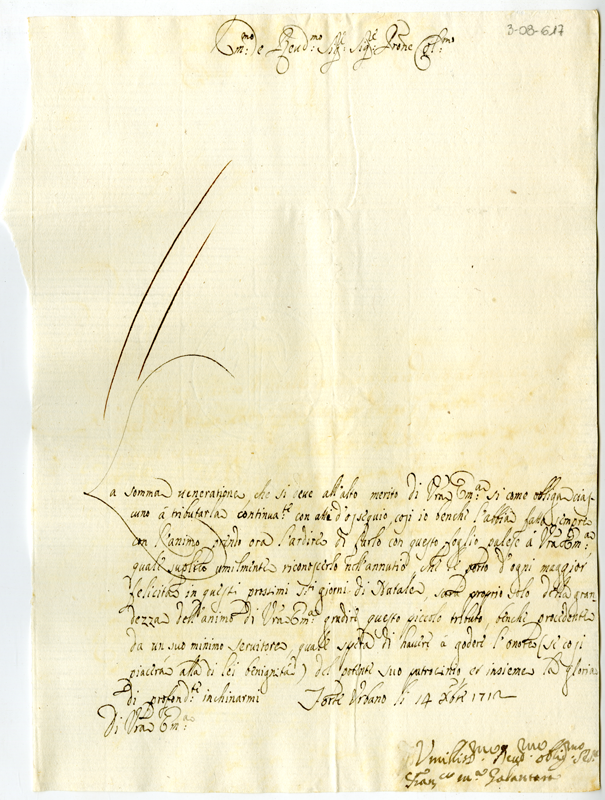 3-08-617
Em:mo e Revd:mo Sig:r Sig:r Prone Col:mo
La somma veneratione, che si deve all'alto merito di Vra Em:a si come obliga cias
cuno á tributarla continua:te con atti d'ossequio cosi io benchi l'abbia fatto sempre
con l'animo, prendo ora l'ardire di farlo con questo foglio, palese á Vra Em:a
quali suplico umilmente riconoscerlo nell'annuntio che le porto d'ogni maggior
felicita in questi prossimi S:ti giorni di Natale, sarà proprio solo della gran
dezza dell'animo di Vra Em:a gradire questo piccolo tributo, benchi procedente
da un suo minimo servitore, quale spera di havere á godere l'onore (se cosi
piacerà alla di lei benignità) del potente suo patrocinio et insieme la gloria
di profond:te inchinarmi Forte Urbano li 14 Xbre 1712
Di Vra Em:a
Umiliss:mo Devd:mo Oblig:mo Ser:re
Fran:co M:a